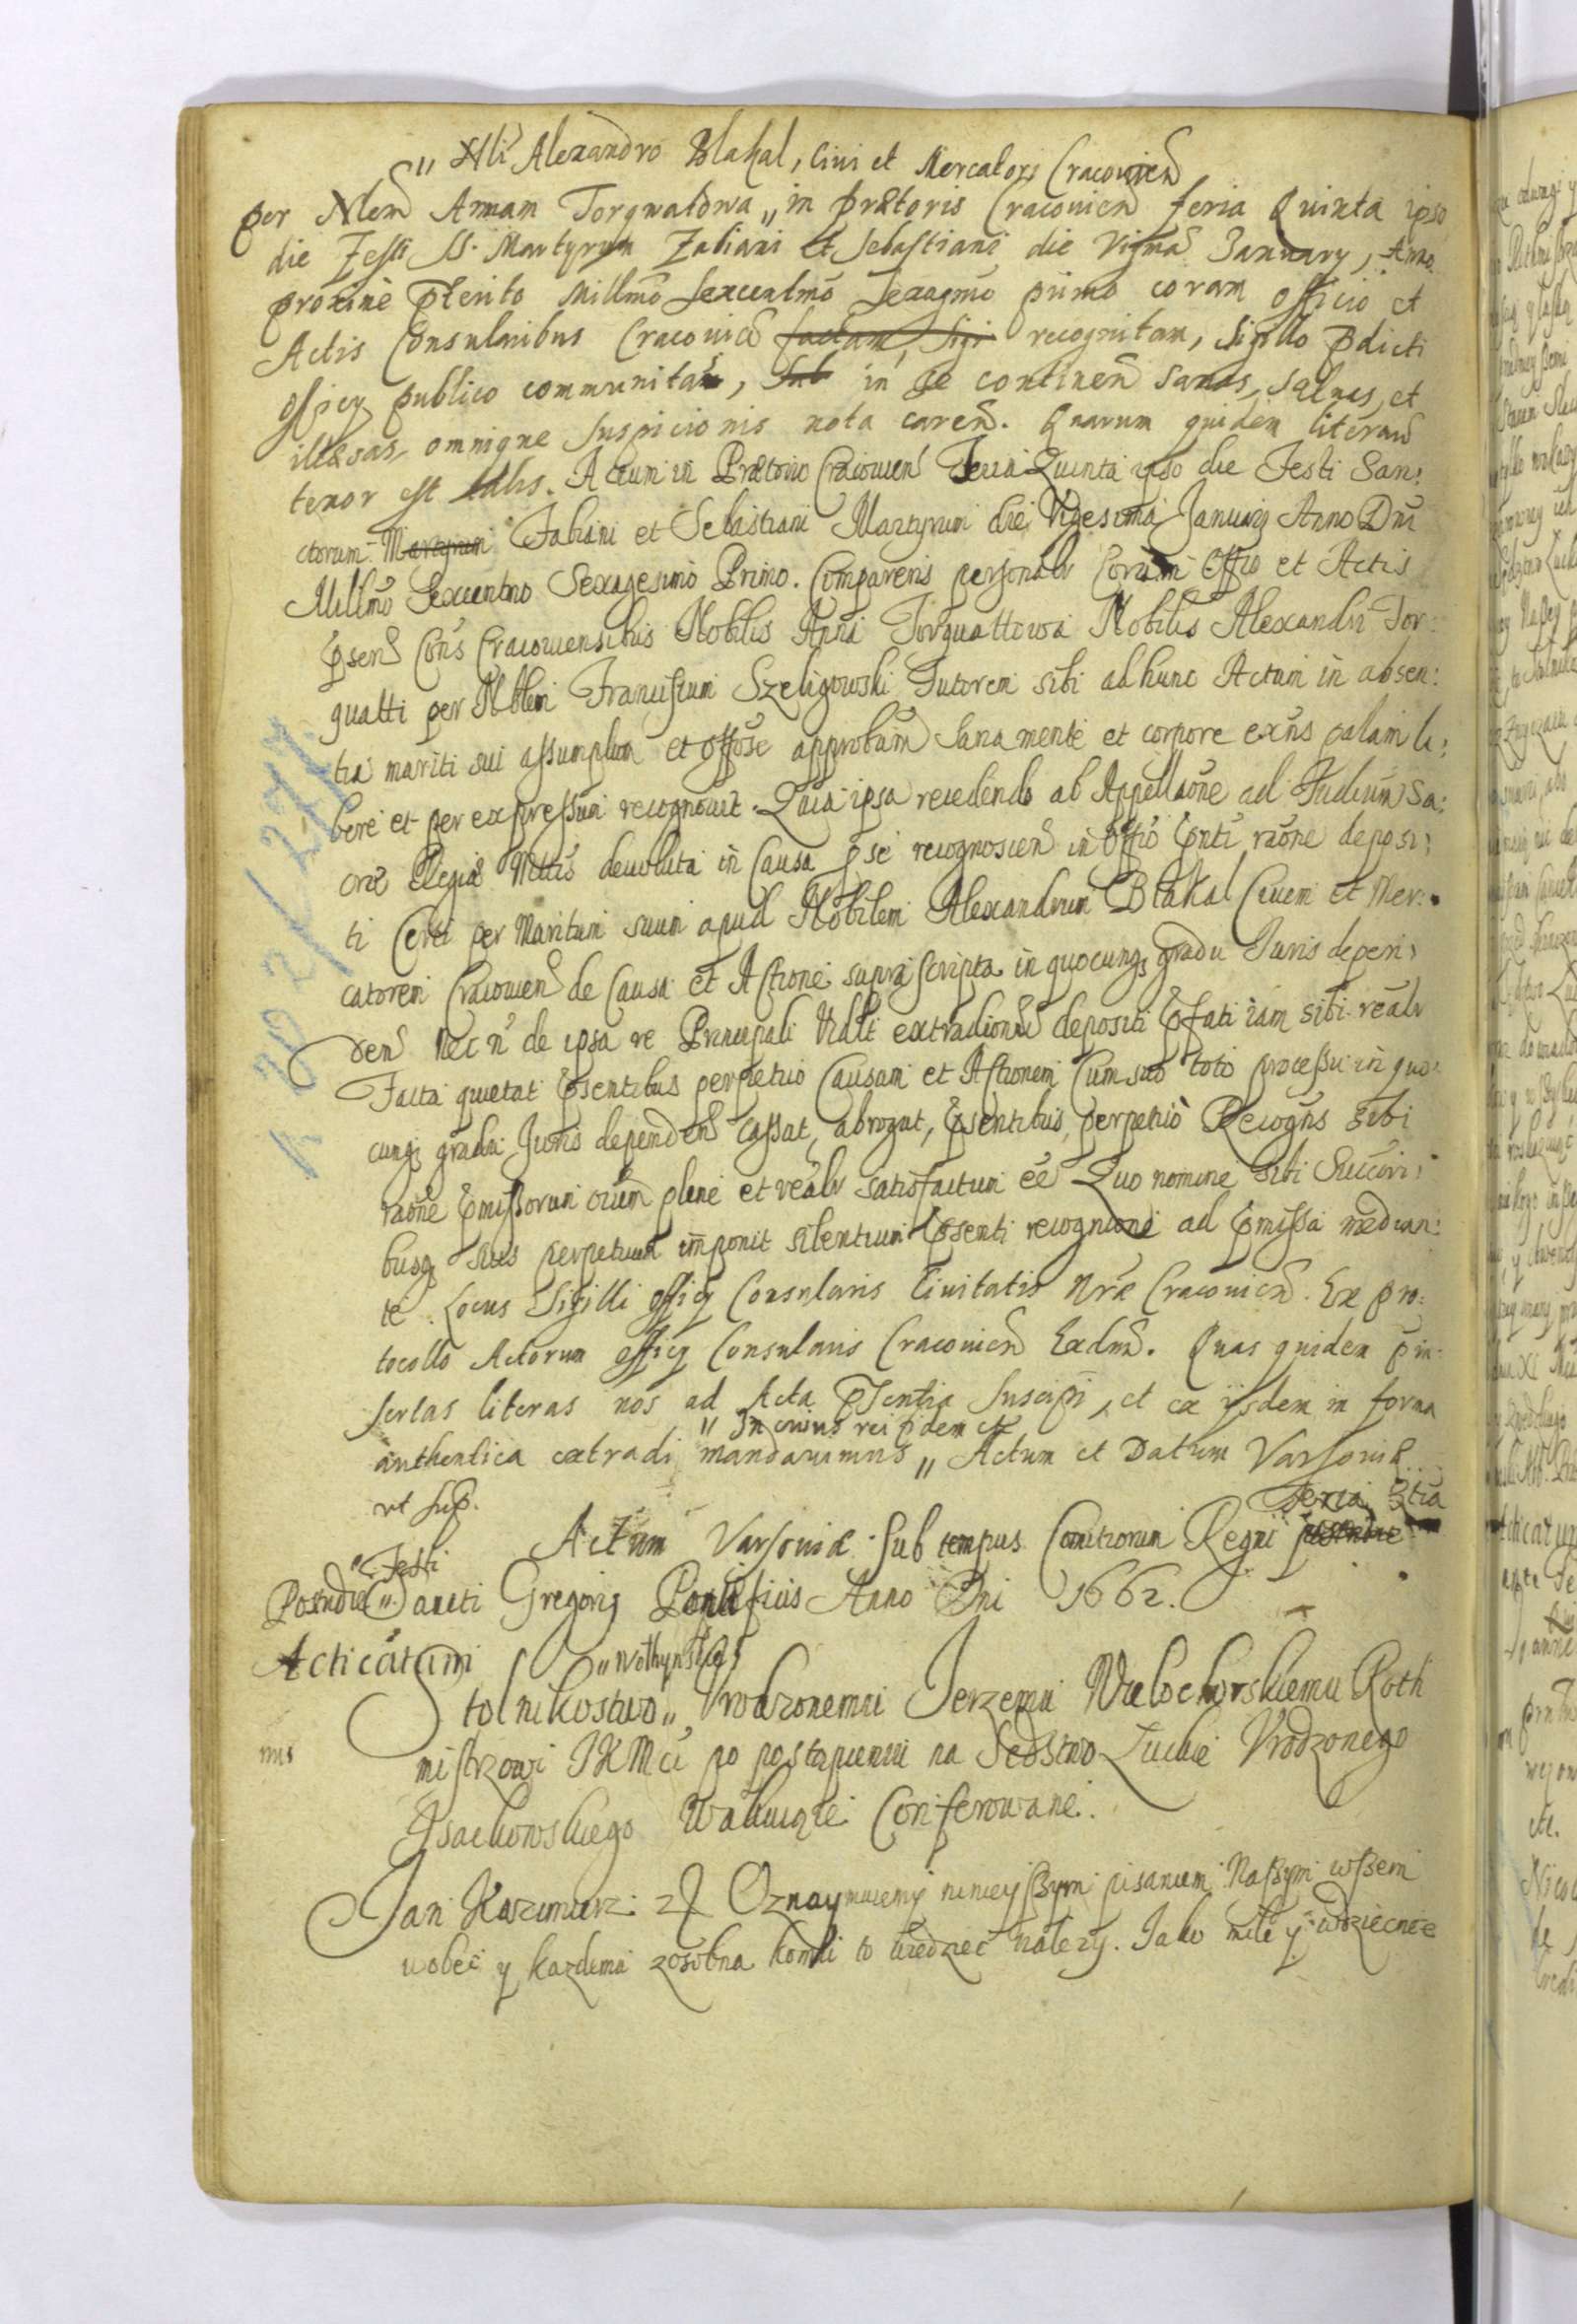 " Nli Alexandro Blakal, Civi et Mercatori Cracovien
per Nlem Annam Torqwatowa " in prætorio Cracovien feria Quinta ipso
die Festi SS. Martyrum Fabiani et Sebastiani die Vigma January, Anno
proxime pterito Millmo Sexcentmo Sexagmo primo coram officio et
Actis Consularibus Cracovien factam, Sigi recognitam, Sigillo pdicti
officy publico communitas, Sub in se continen sanas, salvas, et
illæsas, omnique suspicionis nota caren. Quarum quidem literarum
tenor est talis. Actum in Prætorio Cracovien Feria Quinta ipso die Festi San:
ctorum Martyrum Fabiani et Sebastiani Martyrum die Vigesima January Anno Dni
Millmo Sexcentmo Sexagesimo Primo. Comparens personalr Coram Offio et Actis
psen Cons Cracoviensibus Nobilis Anna Torquattowa Nobilis Alexandri Tor:
quatti per Nblem Franciscum Szeligowski Tutorem sibi ad hunc Actum in absen:
tia mariti sui assumptum et offose approbatum sana mente et corpore exns palam li:
bere et per expressum recognovit. Quia ipsa recedendo ab Appellaone ad Judicium Sa:
cræ Regiæ Mttis devoluta in Causa pse recognoscen in Offio pnti raone deposi:
ti Certi per Maritum suum apud Nobilem Alexandrum Blakal Civem et Mer:
catorem Cracovien de Causa et Actione supra scripta in quocunq gradu Juris depen:
den nec n de ipsa re Principali Vidlt extradionis depositi pfati iam sibi realr
Facta quietat psentibus perpetuo Causam et Actionem Cum suo toto processu in quo:
cunq gradu Juris dependen cassat, abrogat, psentibus, perpetuo Recogns sibi
raone pmissorum oium plene et realr satisfactum ee Quo nomine sibi Successori:
busq suis perpetuum imponit silentium psenti recognitione ad pmissa median:
te. Locus Sigilli officy Consularis Civitatis Nræ Cracovien. Ex pro:
tocollo Actorum officy Consularis Cracovien Extum. Quas quidem pin:
sertas literas nos ad Acta psentia suscipi, et ex ijsdem in forma
authentica extradi mandavimus " In cuius rei fidem etc " Actum et Datum Varsoviæ
ut sup.
Actum Varsoviæ Sub tempus Comitiorum Regni Feria 3tia
Postridie " Festi " Sancti Gregorij Pontificis Anno Dni 1662.
Acticatum
Stolnikostwo " Wołhynskie " Vrodzonemu Jerzemu Wielochorskiemu Roth
mistrzowi JKMci po postąpieniu na Sędstwo Luckie Vrodzonego
Isaykowskiego Wakuiące Conferowane.
Jan Kazimierz Oznaymuiemy ninieyszym pisaniem Naszym wszem
wobec y kazdemu zosobna komu to wiedziec nalezy. Jako miłe y wdzięczne